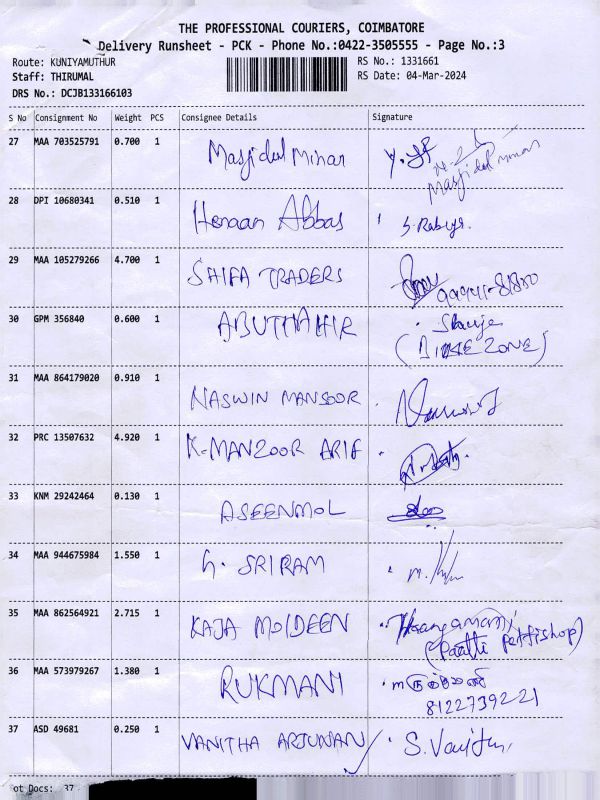 THE PROFESSIONAL COURIERS, COIMBATORE
Delivery Runsheet - PCK - Phone No.:0422-3505555 - Page No.:3
Route: KUNIYAMUTHUR RS No.: 1331661
Staff: THIRUMAL RS Date: 04-Mar-2024
DRS No.: DCJB133166103
S No Consignment No Weight PCS Consignee Details Signature
27 MAA 703525791 0.700 1 Masjidul Minar
Masjidul minar
28 DPI 10680341 0.510 1 Henaan Abbas S. Rabiya.
29 MAA 105279266 4.700 1 SHIFA TRADERS
30 GPM 356840 0.600 1 ABUTHAHIR
(BIKE ZONE)
31 MAA 864179020 0.910 1 NASWIN MANSOOR
32 PRC 13507632 4.920 1 K-MANZOOR ARIF
33 KNM 29242464 0.130 1 ASEENMOL
34 MAA 944675984 1.550 1 G. SRIRAM
35 MAA 862564921 2.715 1 KAJA MOIDEEN
36 MAA 573979267 1.380 1 RUKMANI
8122739221
37 ASD 49681 0.250 1 VANITHA ARJUNAN S. Vanitha
ot Docs: 37